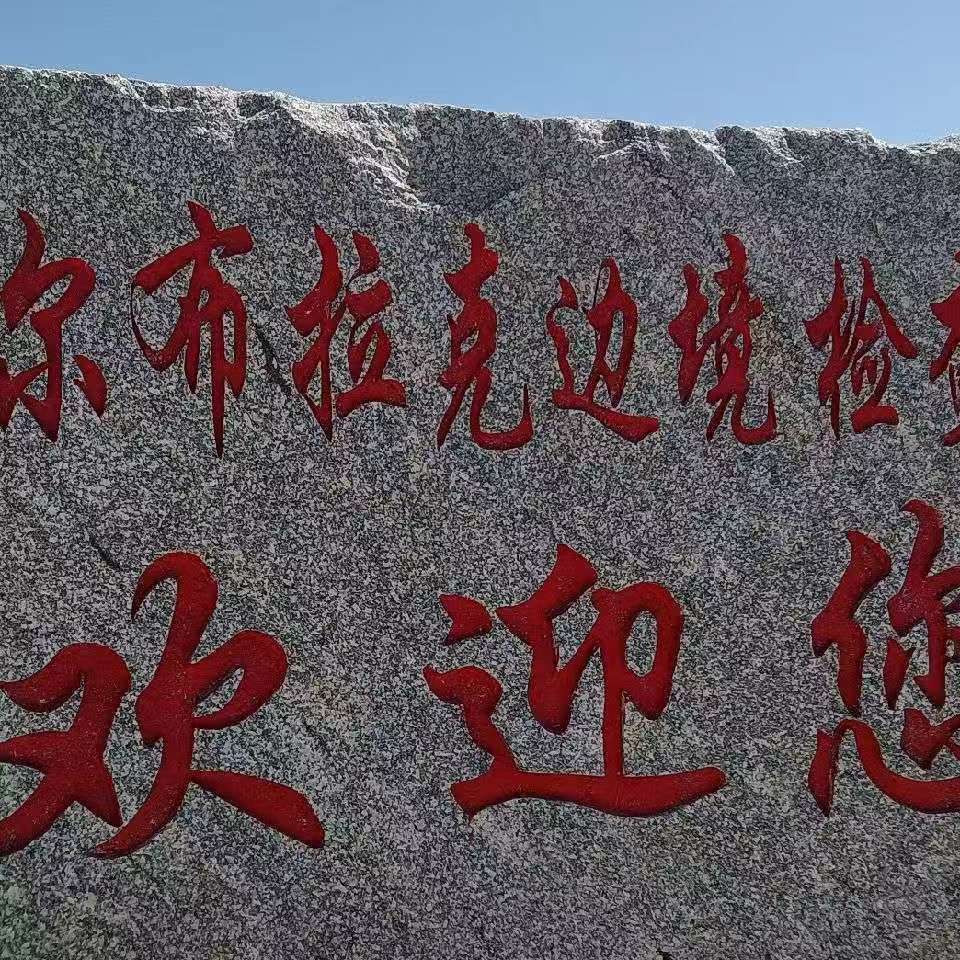 尔布拉克边境检查
欢迎您